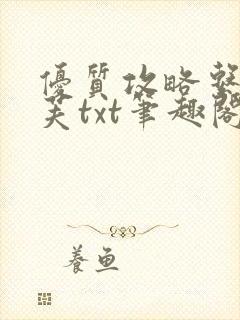 優質攻略
芙txt筆趣閣
養魚